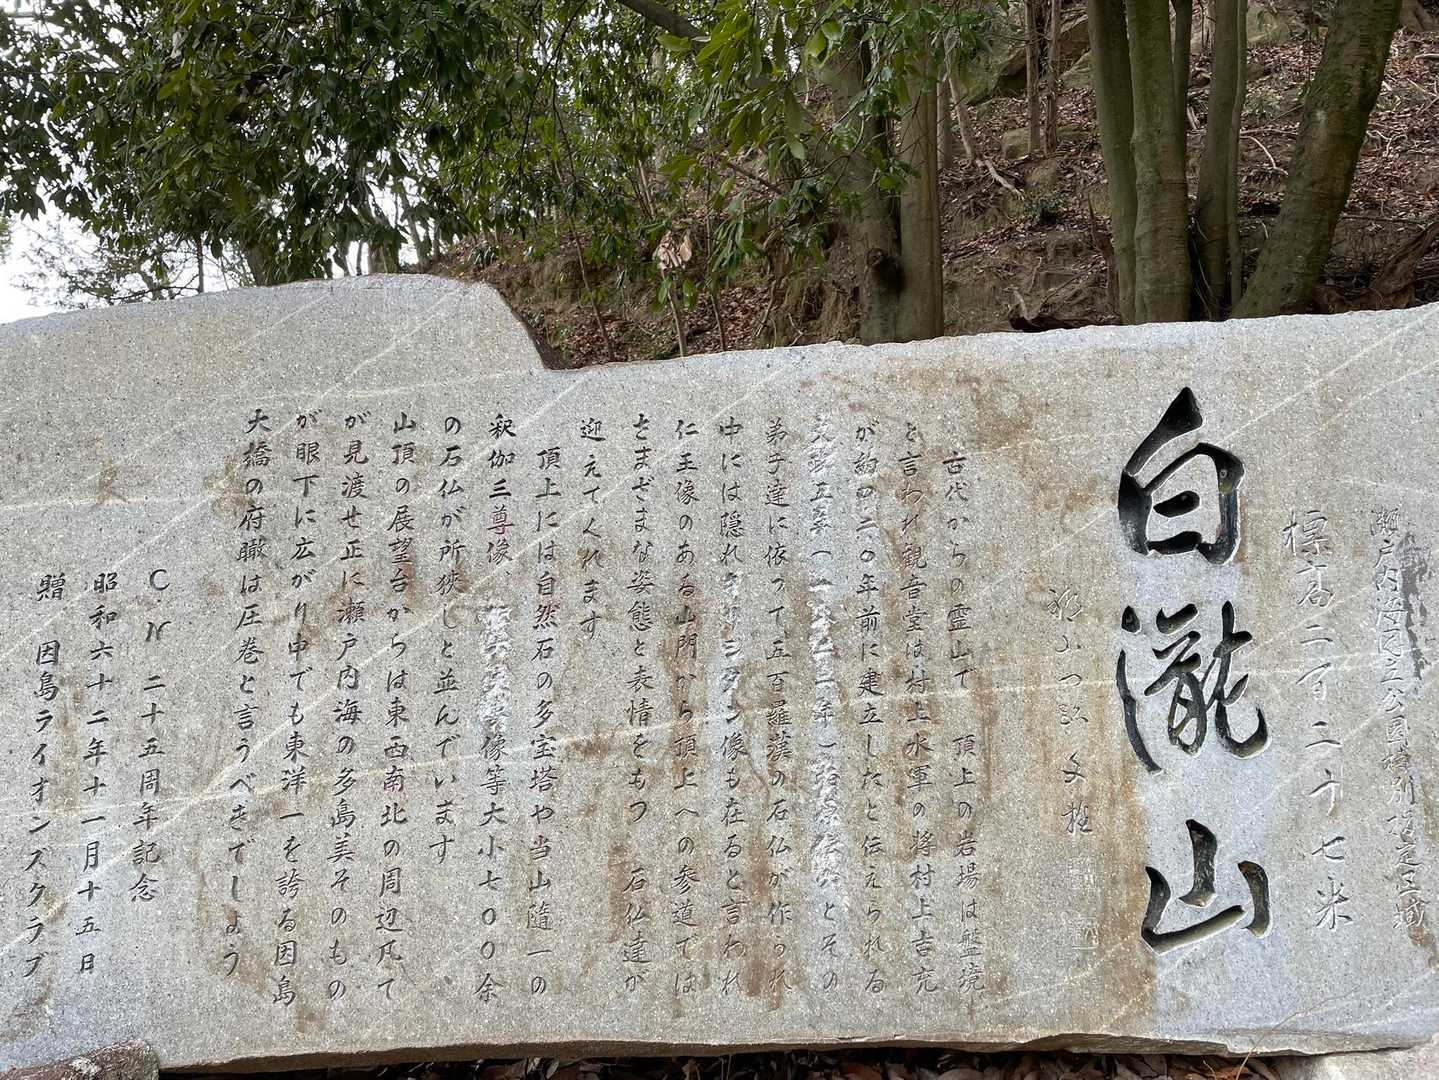 瀬戸内海国立公園特別指定区域
標高二百二十七米
白瀧山
古代からの霊山で 頂上の岩場は盤境
と言われ観音堂は村上水軍の将村上吉充
が約四二〇年前に建立したと伝えられる
文政五年(一八二二年)柏原伝六とその
弟子達に依って五百羅漢の石仏が作られ
中には隠れキリシタン像も在ると言われ
仁王像のある山門から頂上への参道では
さまざまな姿態と表情をもつ 石仏達が
迎えてくれます
頂上には自然石の多宝塔や当山随一の
釈迦三尊像 像等大小七〇〇余
の石仏が所狭しと並んでいます
山頂の展望台からは東西南北の周辺凡て
が見渡せ正に瀬戸内海の多島美そのもの
が眼下に広がり中でも東洋一を誇る因島
大橋の府瞰は圧巻と言うべきでしょう
CN 二十五周年記念
昭和六十二年十一月十五日
贈 因島ライオンズクラブ